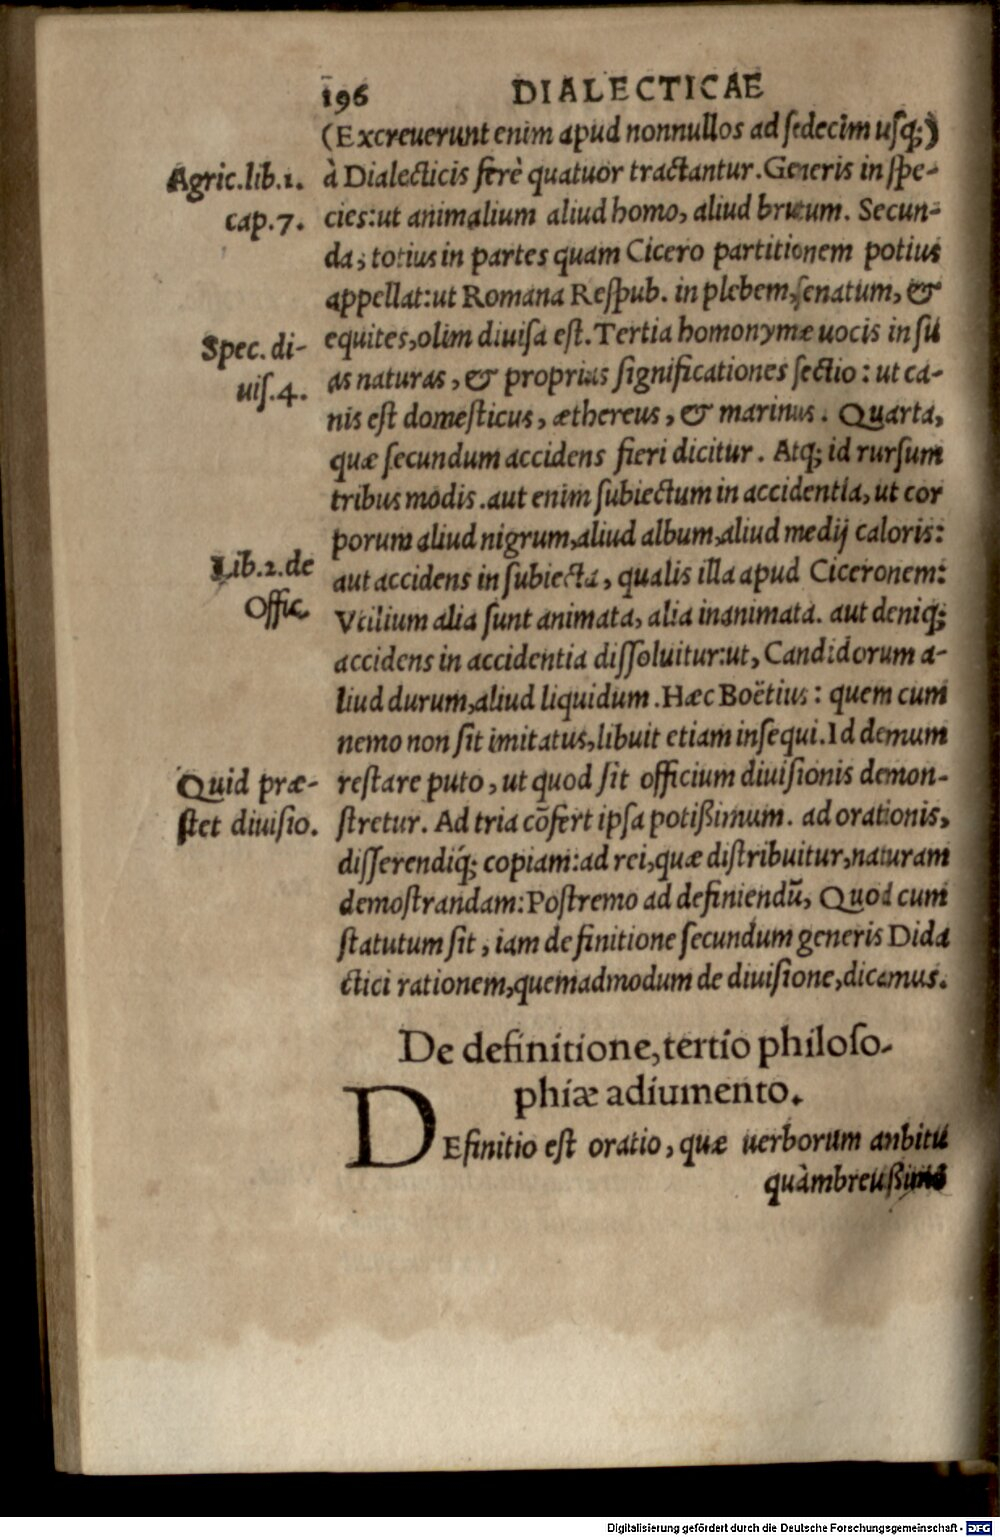 196 DIALECTICAE
(Excreuerunt enim apud nonnullos ad sedecim usq;)
Agric.lib.1.
à Dialecticis ferè quatuor tractantur. Generis in spe-
cap.7.
cies: ut animalium aliud homo, aliud brutum. Secun-
da, totius in partes quam Cicero partitionem potius
appellat: ut Romana Respub. in plebem, senatum, &
Spec. di-
equites, olim diuisa est. Tertia homonymæ uocis in su
uis.4.
as naturas, & proprias significationes sectio: ut ca-
nis est domesticus, æthereus, & marinus. Quarta,
quæ secundum accidens fieri dicitur. Atq; id rursum
tribus modis. aut enim subiectum in accidentia, ut cor
porum aliud nigrum, aliud album, aliud medij caloris:
Lib.2.de
aut accidens in subiecta, qualis illa apud Ciceronem:
Offic.
Vtilium alia sunt animata, alia inanimata. aut deniq;
accidens in accidentia dissoluitur: ut, Candidorum a-
liud durum, aliud liquidum. Hæc Boëtius: quem cum
nemo non sit imitatus, libuit etiam insequi. Id demum
Quid præ-
restare puto, ut quod sit officium diuisionis demon-
stet diuisio.
stretur. Ad tria cõfert ipsa potißimum. ad orationis,
disserendiq́; copiam: ad rei, quæ distribuitur, naturam
demostrandam: Postremo ad definiendũ, Quod cum
statutum sit, iam definitione secundum generis Dida
ctici rationem, quemadmodum de diuisione, dicamus.
De definitione, tertio philoso-
phiæ adiumento.
DEfinitio est oratio, quæ uerborum anbitu
quàmbreuißimo